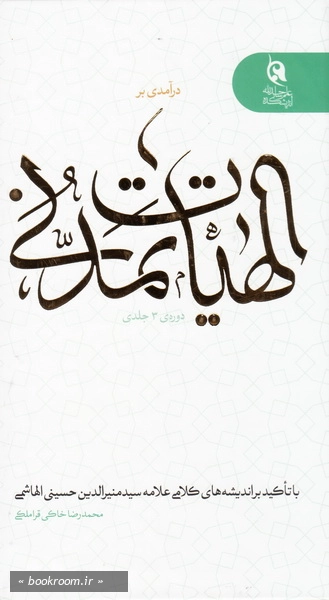 درآمدی بر
الهیات تمدّنی
دوره‌ی ۳ جلدی
با تأکید بر اندیشه‌های کلامی علامه سید منیرالدین حسینی الهاشمی
محمدرضا خاکی قراملکی
« bookroom.ir »